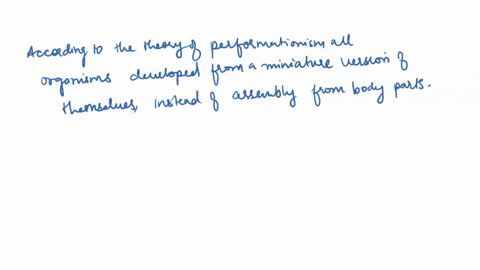 According to the theory of performationism all
organisms developed from a miniature version of
themselves, instead of assembly from body parts.